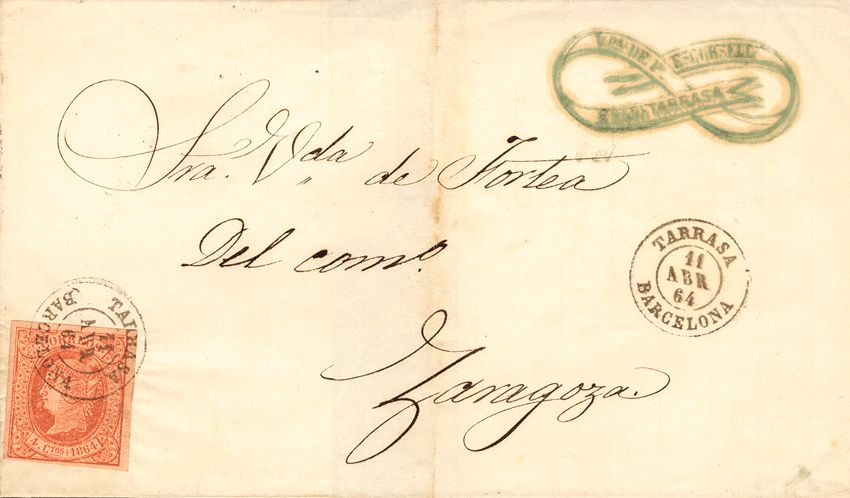 Sra. Vda de Fortea
Del como.
Zaragoza.
TARRASA
11
ABR
64
BARCELONA
TARRASA
11
ABR
64
BARCELONA
4 CTOS 1864
TARRASA